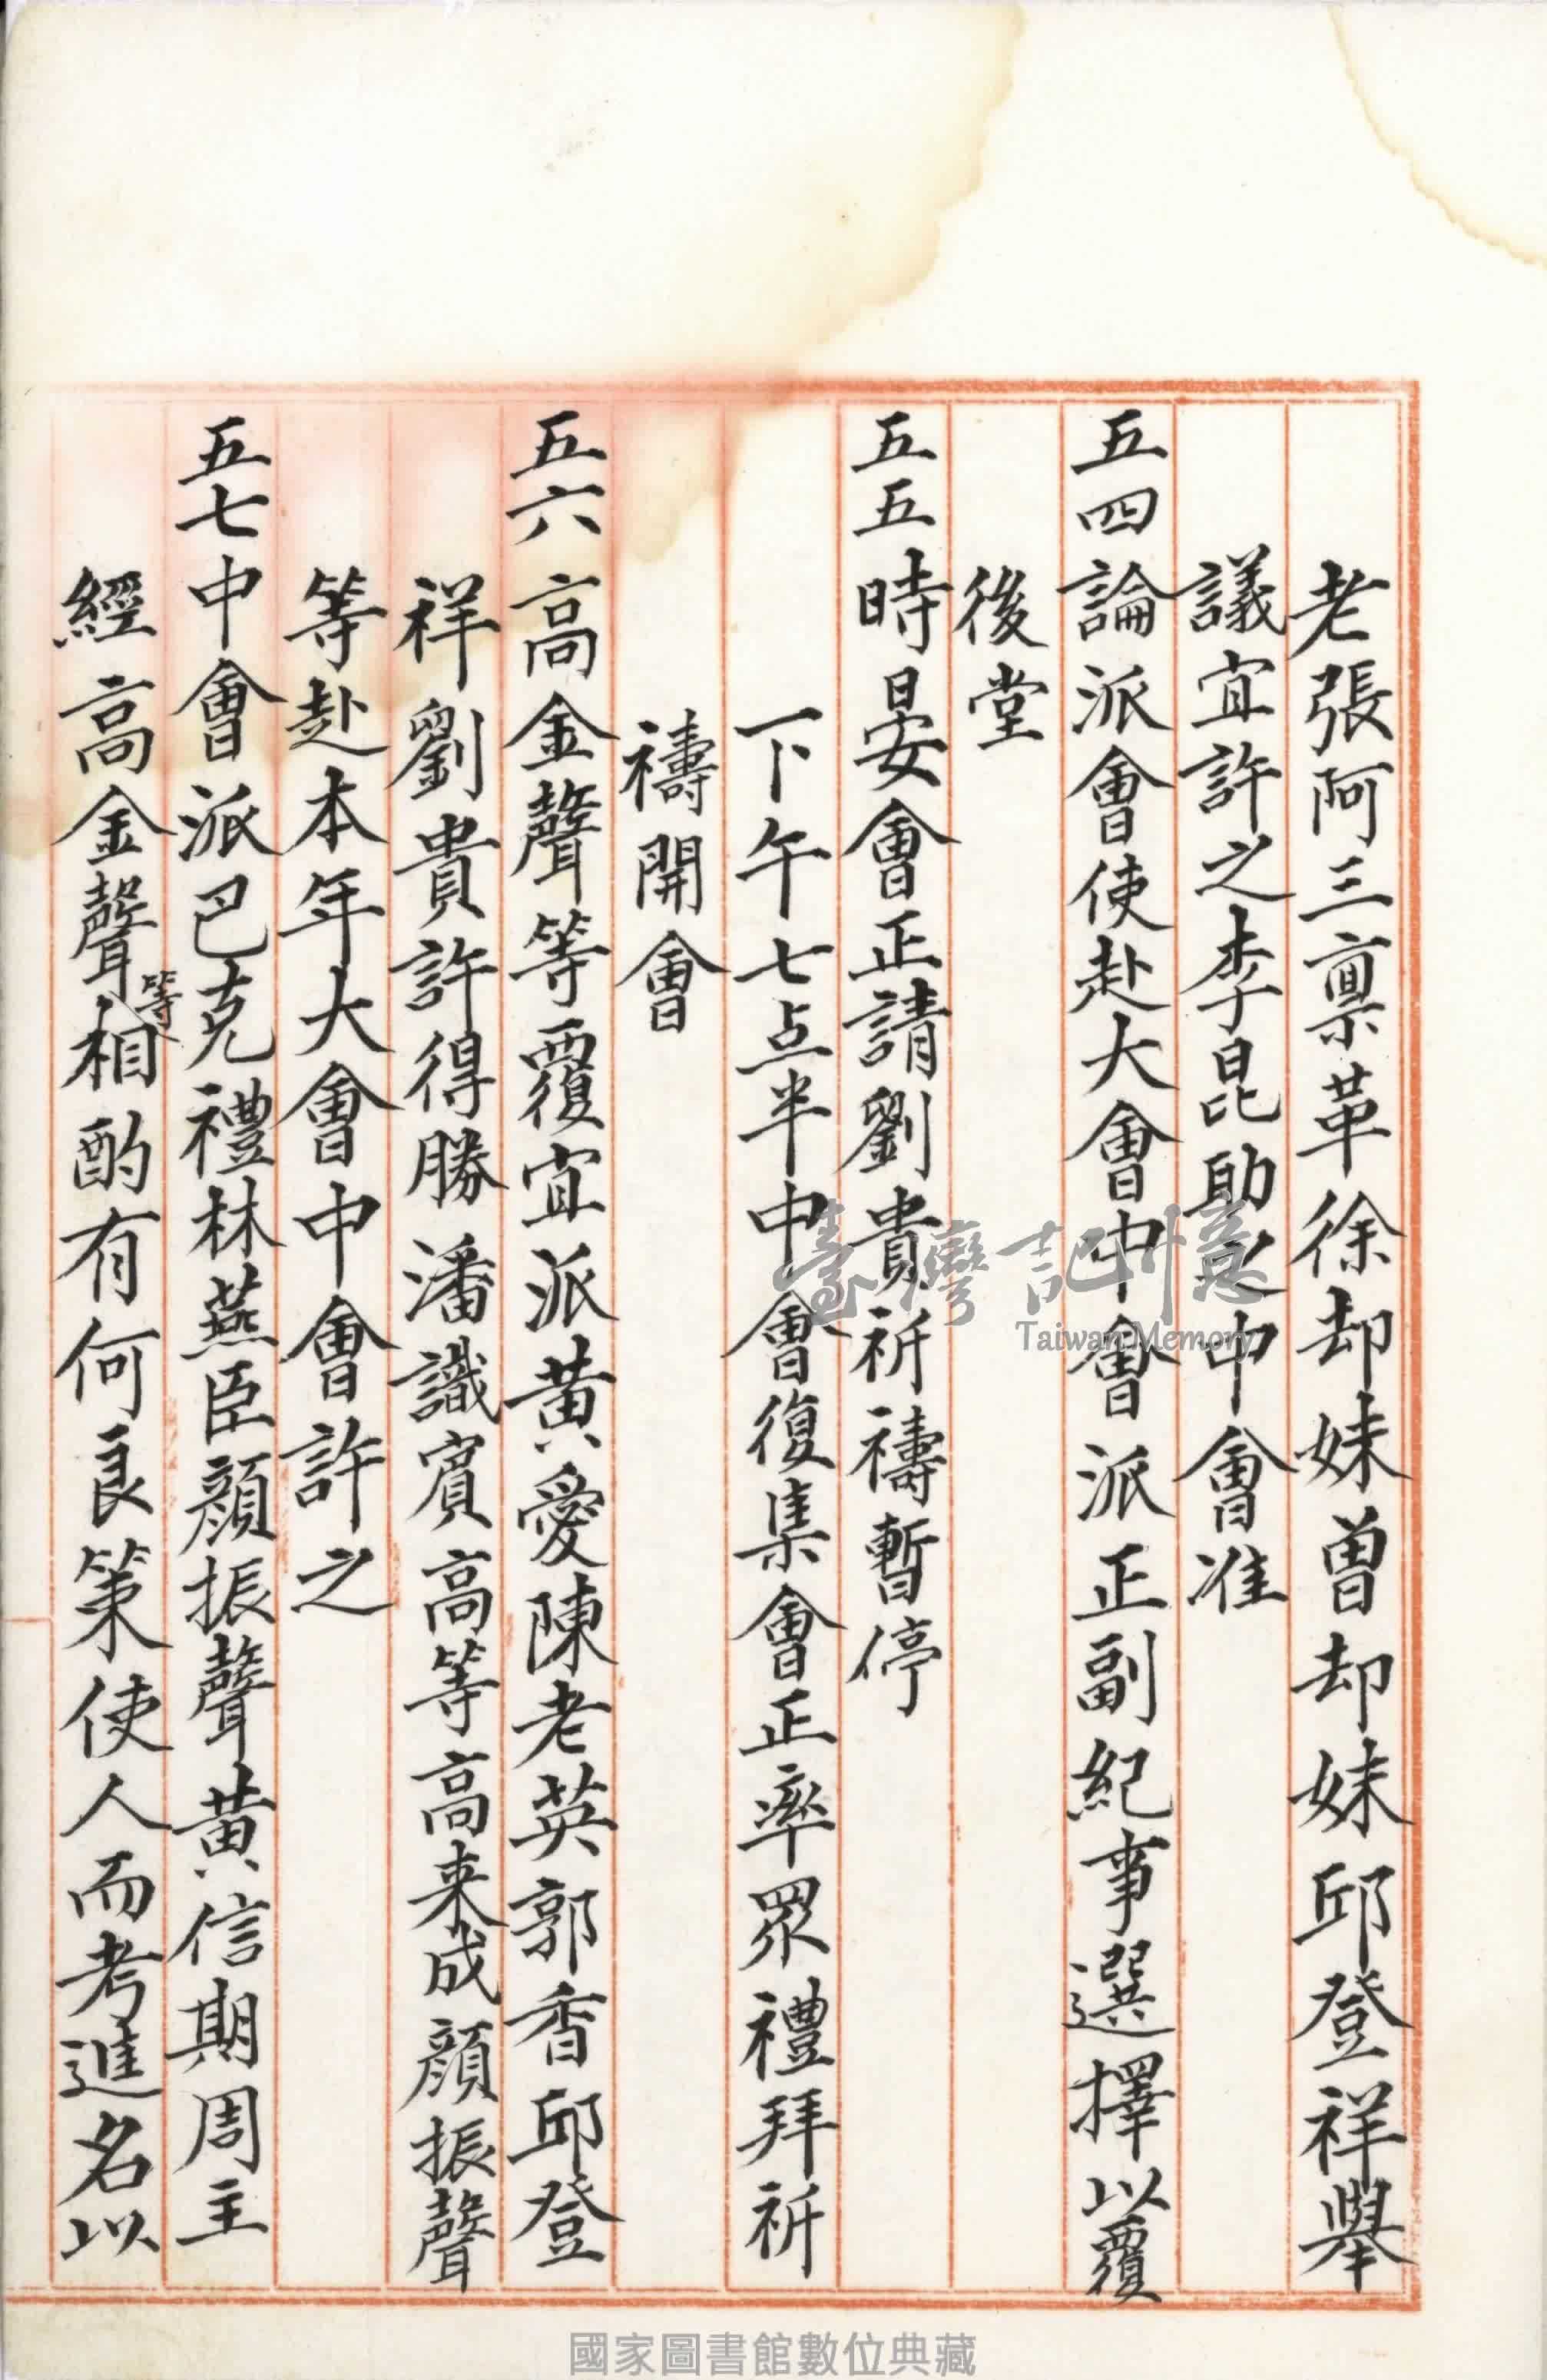 老張阿三禀革徐却妹曾却妹邱登祥舉
議宜許之李昆助之中會准
五四論派會使赴大會中會派正副紀事選擇以覆
後堂
五五時晏會正請劉貴祈禱暫停
下午七点半中會復集會正率眾禮拜祈
禱開會
五六高金聲等覆宜派黃愛陳老英郭香邱登
祥劉貴許得勝潘識賓高等高来成顏振聲
等赴本年大會中會許之
五七中會派巴克禮林燕臣顏振聲黃信期周主
經高金聲等相酌有何良策使人而考進名以
臺灣記憶
Taiwan Memory
國家圖書館數位典藏